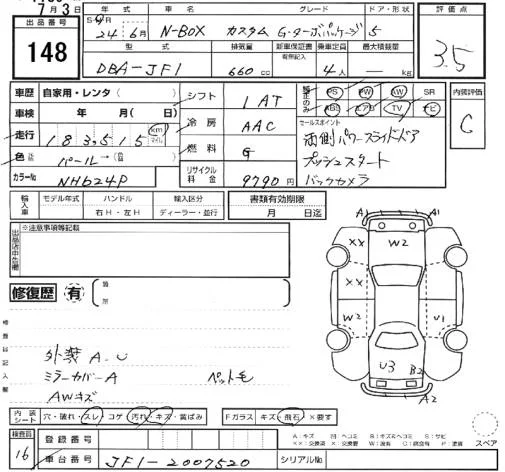 7月3日
出品番号
148
年式 車名 グレード ドア・形状
24年6月 N-BOX カスタム G・ターボパッケージ 5
型式 排気量 新車保証書 乗車定員 最大積載量
有無記入
DBA-JF1 660cc 4人 — kg
評価点
3.5
車歴 自家用・レンタ( )
車検 年 月( 日)
走行 183,515 km マイル
色 パール→( )
カラーNo NH624P
シフト IAT
冷房 AAC
燃料 G
リサイクル料金 9790円
純正のみ PS PW AW SR
ABS エアB TV ナビ
セールスポイント
両側パワースライドドア
プッシュスタート
バックカメラ
内装評価
C
輸入車 モデル年式 ハンドル 輸入区分 書類有効期限
右H・左H ディーラー・並行 月 日迄
出品店申告欄 ※注意事項等記載
修復歴 有
検査員記入欄
外装A.U
ミラーカバーA ペット毛
AWキズ
A1 A1
XX W2 XX
W2 U1
U3 B2
A2
内装シート 穴・破れ・スレ・コゲ 汚れ・キズ・黄ばみ Fガラス キズ・飛石・×要す
A:キズ 凹:ヘコミ B:キズヘコミ S:サビ
XX:交換済 X:交換要 W:波有 C:腐食有 P:塗装
スペア
検査員 16
登録番号
車台番号 JF1-2007520 シリアルNo